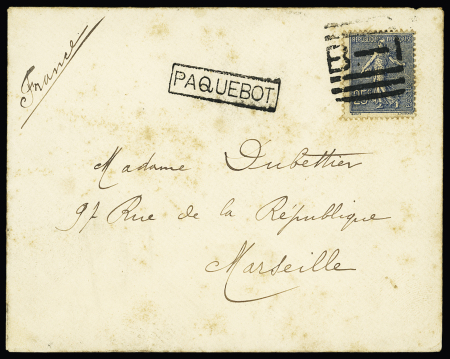 France
PAQUEBOT
Madame Dubettier
97 Rue de la République
Marseille